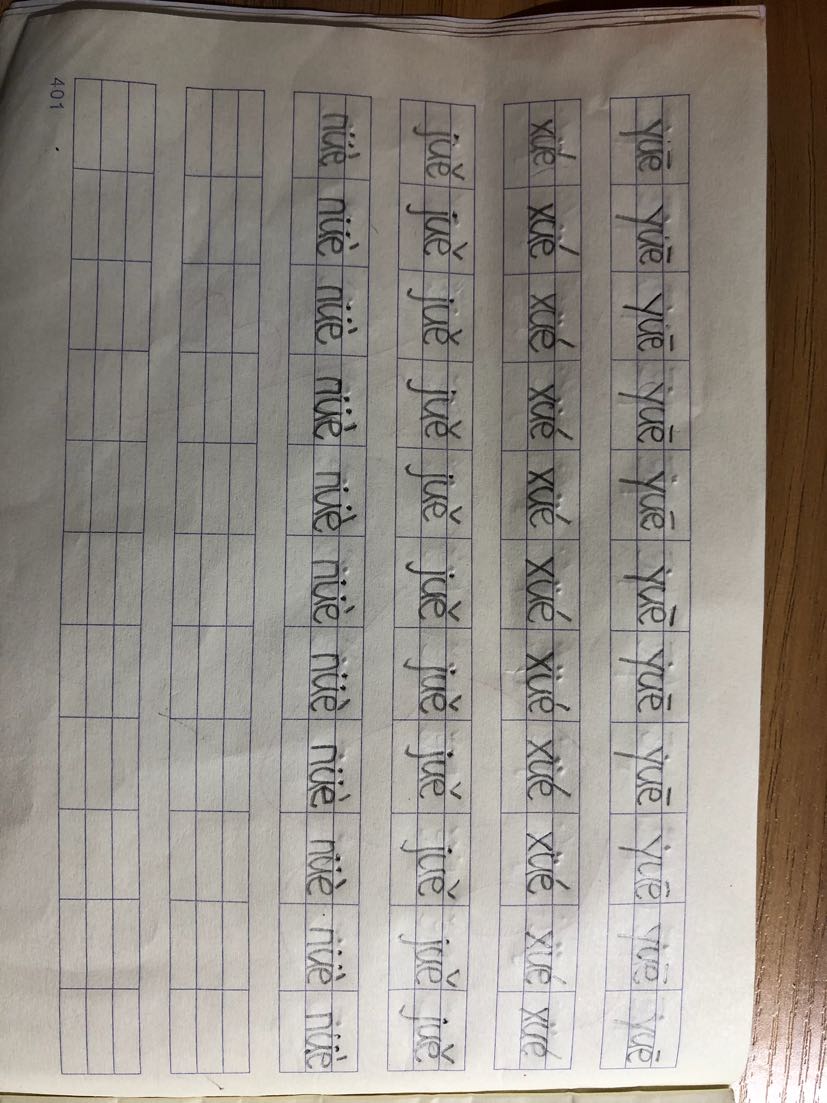 yuē yuē yuē yuē yuē yuē yuē yuē yuē yuē yuē
xué xué xué xué xué xué xué xué xué xué xué
juě juě juě juě juě juě juě juě juě juě juě
nüè nüè nüè nüè nüè nüè nüè nüè nüè nüè nüè
401